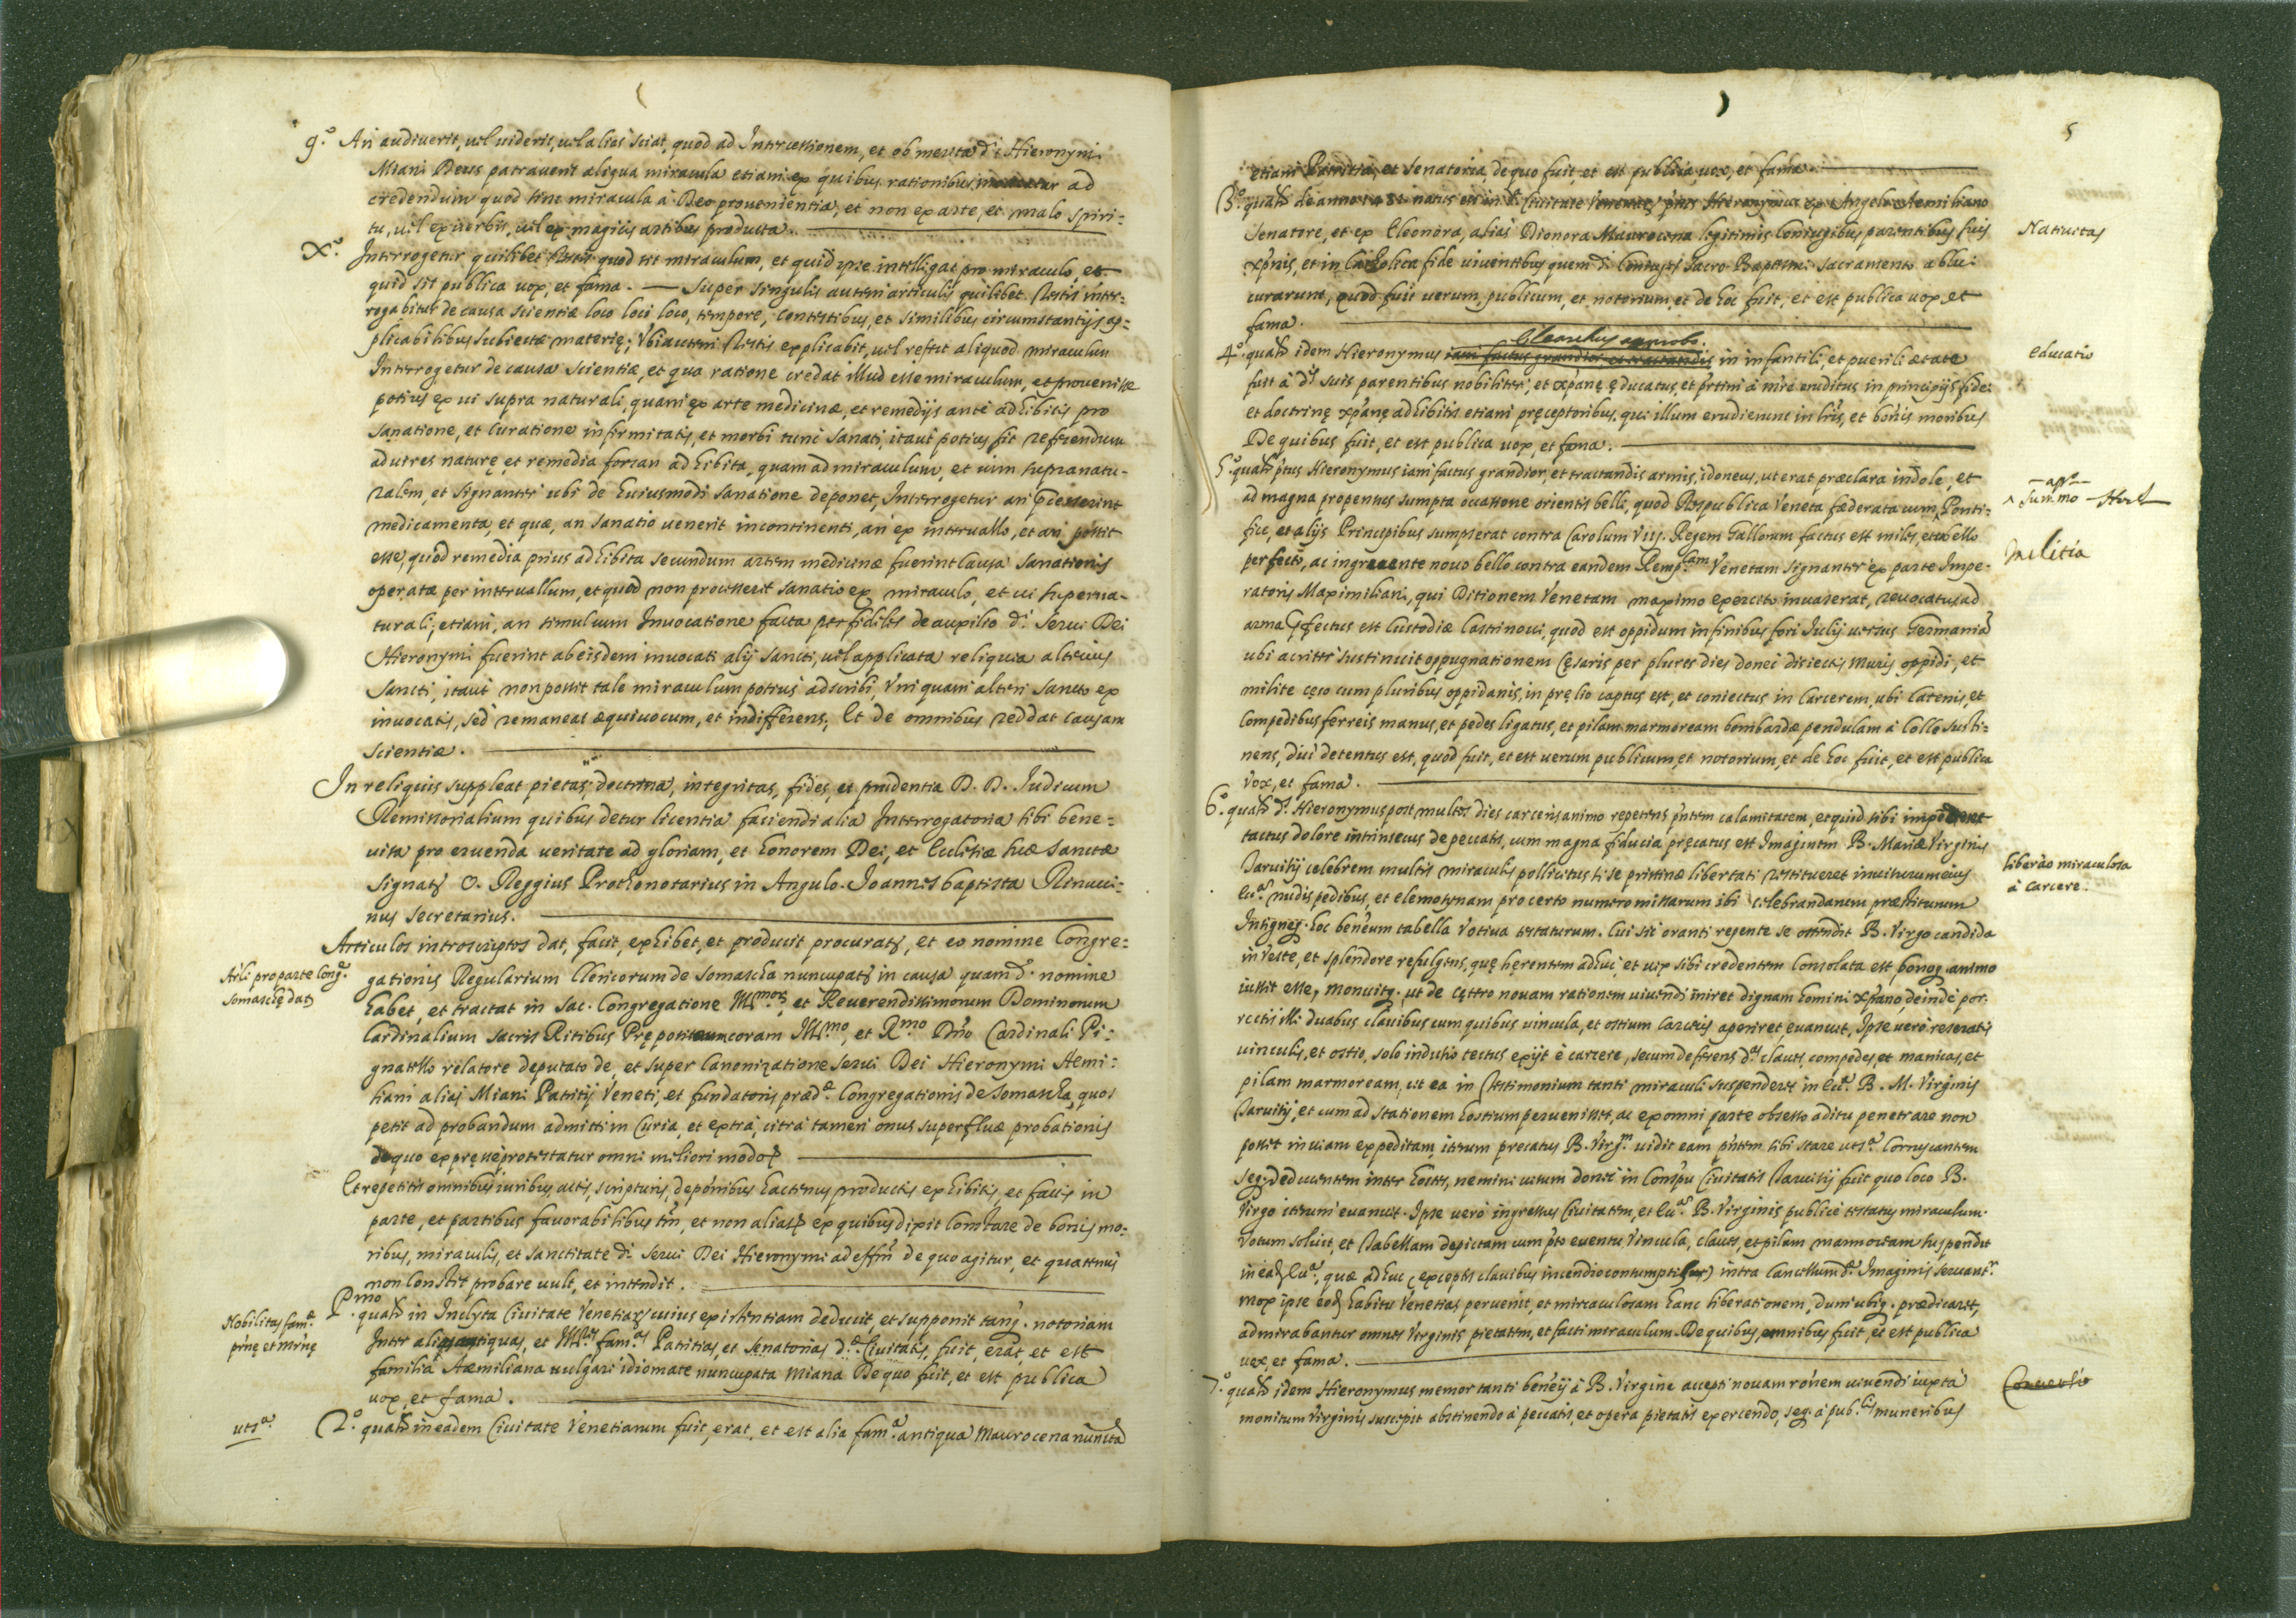 9.º An audiverit, vel viderit, vel alias sciat, quod ad Intercessionem, et ob merita d.i Hieronymi
Miani Deus patraverit aliqua miracula etiam ex quibus rationibus moveatur ad
credendum quod sint miracula à Deo provenientia, et non ex arte, et malo spiri=
tu, vel ex verbis, vel ex magicis artibus producta.
X.º Interrogetur quilibet Testis quod sit miraculum, et quid ipse intelligat pro miraculo, et
quid sit publica vox, et fama. — Super singulis autem articulis quilibet Testis inter=
rogabitur de causa scientiæ loco loci loco, tempore, Contestibus, et similibus circumstantijs ap=
plicabilibus subiectæ materię; Ubi autem Testis explicabit, vel refert aliquod miraculum
Interrogetur de causa scientiæ, et qua ratione credat illud esse miraculum, et provenisse
potius ex vi supra naturali, quam ex arte medicinæ, et remedijs ante adhibitis pro
sanatione, et Curatione infirmitatis, et morbi tunc sanati, itaut potius sit referendum
ad vires naturę, et remedia forsan adhibita, quam ad miraculum, et vim supranatu-
ralem, et signanter ubi de huiusmodi sanatione deponet, Interrogetur an pręcesserint
medicamenta, et quæ, an sanatio venerit incontinenti, an ex intervallo, et an possit
esse, quod remedia prius adhibita secundum artem medicinæ fuerint Causa sanationis
operatæ per intervallum, et quod non processerit sanatio ex miraculo, et vi superna-
turali; etiam, an simul cum Invocatione facta per fideles de auxilio d.i Servi Dei
Hieronymi fuerint ab eisdem invocati alij sancti, vel applicata reliquia alterius
Sancti, itaut non possit tale miraculum potius adscribi, Uni quam alteri Sancto ex
invocatis, sed remaneat æquivocum, et indifferens; Et de omnibus reddat causam
scientiæ.
In reliquis suppleat pietas, doctrina, integritas, fides, et prudentia D. D. Iudicum
Remissorialium quibus detur licentia faciendi alia Interrogatoria sibi bene=
visa pro eruenda veritate ad gloriam, et honorem Dei, et Ecclesiæ suæ Sanctæ
Signatꝫ O. Reggius Prothonotarius in Angulo. Joannes baptista Rinucci=
nus Secretarius.
Articulos introscriptos dat, facit, exhibet, et producit procuratꝫ, et eo nomine Congre=
Arli pro parte Cong.e
Somaschę datꝫ
gationis Regularium Clericorum de Somascha nuncupatꝫ in causa quam d.º nomine
habet, et tractat in Sac. Congregatione Ill.morꝫ et Reverendissimorum Dominorum
Cardinalium Sacris Ritibus Prępositorum coram Ill.mo, et R.mo Dno Cardinali Pi=
gnatello relatore deputato de, et super Canonizatione Servi Dei Hieronymi Aemi=
liani alias Miani Patritij Veneti, et fundatoris præd.æ Congregationis de Somascha, quos
petit ad probandum admitti in Curia, et extra, citra tamen onus superfluæ probationis
de quo expręsse protestatur omni meliori modoꝫ
Et repetitis omnibus iuribus, actis, scripturis, deponibus hactenus productis exhibitis, et factis in
parte, et partibus favorabilibus tm, et non aliasꝫ ex quibus dixit Constare de bonis mo=
ribus, miraculis, et sanctitate d.i Servi Dei Hieronymi ad effm de quo agitur, et quatenus
non Constet probare vult, et intendit.
Nobilitas fam.æ
prnę et mrnę
P.mo quatꝫ in Inclyta Civitate Venetiarꝫ cuius existentiam deducit, et supponit tanq. notoriam
Inter alias antiquas, et Ill.es fam.as Patritias, et Senatorias d.æ Civitatis, fuit, erat, et est
familia Aemiliana vulgari idiomate nuncupata Miana De quo fuit, et est publica
vox, et fama.
uts.a
2.º quatꝫ in eadem Civitate Venetiarum fuit, erat, et est alia fam.a antiqua Maurocena nuncta
5
etiam Patritia, et Senatoria, de quo fuit, et est publica vox, et fama.
3.º quatꝫ de anno 1481 natus est in d.a Civitate Venetiarꝫ ptus Hieronymus ex Angelo Aemiliano
Senatore, et ex Eleonora, alias Dionora Maurocena legitimis Coniugibus parentibus suis
xpnis, et in Catholica fide viventibus quem d.i Coniuges Sacro Baptismi sacramento ablui
curarunt, quod fuit verum, publicum, et notorium et de hoc fuit, et est publica vox, et
fama.
Nativitas
4.º quatꝫ idem Hieronymus iam factus grandior, et tractandis in infantili, et puerili ætate
fuit à d.is suis parentibus nobiliter, et xpanę educatus, et prtim à mre eruditus in principijs fidei
et doctrinę xpanę adhibitis etiam pręceptoribus, qui illum erudierunt in lris, et bonis moribus
De quibus fuit, et est publica vox, et fama.
educatio
5.º quatꝫ ptus Hieronymus iam factus grandior, et tractandis armis, idoneus, ut erat præclara indole, et
ad magna propensus sumpta occasione orientis belli, quod Respublica Veneta fæderata cum ^ Ponti=
fice, et alijs Principibus sumpserat contra Carolum VIII. Regem Gallorum factus est miles, et bello
perfecto, ac ingruente novo bello contra eandem Remp.cam Venetam signanter ex parte Impe-
ratoris Maximiliani, qui Ditionem Venetam maximo exercitu invaserat, revocatus ad
arma pfectus est Custodiæ Castrinovi, quod est oppidum in finibus fori Iulij versus Germaniã
ubi acriter sustinuit oppugnationem Cęsaris per plures dies donec disiectis muris oppidi, et
milite cęso cum pluribus oppidanis, in pręlio captus est, et coniectus in Carcerem, ubi Catenis, et
Compedibus ferreis manus, et pedes ligatus, et pilam marmoream bombardæ pendulam à Collo susti=
nens, diu detentus est, quod fuit, et est verum publicum, et notorium, et de hoc fuit, et est publica
vox, et fama.
^ summo
Militia
6.º quatꝫ d.s Hieronymus post multos dies carceris animo repetens pntem calamitatem, et quid sibi impenderet
tactus dolore intrinsecus de peccatis, cum magna fiducia pręcatus est Imaginem B. Mariæ Virginis
Tarvisij celebrem multis miraculis pollicitus si se pristinæ libertati restitueret inviturum eius
Ecc.am nudis pedibus, et elemosynam pro certo numero missarum ibi celebrandarum præstiturum
Insigneq. hoc beneum tabella Votiva testaturum. Cui sic oranti repente se ostendit B. Virgo candida
in veste, et splendore refulgens, quę hęrentem adhuc, et vix sibi credentem Consolata est, bonoq. animo
iussit esse, monuitq. ut de cętero novam rationem vivendi iniret dignam homini xpano, deinde por-
rectis illi duabus clavibus cum quibus vincula, et ostium Carceris aperiret, evanuit, Ipse verò reseratis
vinculis, et ostio, solo indusio tectus exijt è carcere, secum deferens d.as claves, compedes, et manicas, et
pilam marmoream, ut ea in Testimonium tanti miraculi suspenderet in Ecc.a B. M. Virginis
Tarvisij, et cum ad stationem hostium pervenisset, ac ex omni parte obsesso aditu penetrare non
posset in viam expeditam, iterum precatus B. Virg.m vidit eam pntem sibi stare uts.a Coruscantem
seq. deducentem inter hostes, nemini visum donec in Conspu Civitatis Tarvisij fuit quo loco B.
Virgo iterum evanuit. Ipse verò ingressus Civitatem, et Ecc.am B. Virginis publicè testatus miraculum.
Votum solvit, et Tabellam depictam cum pto eventu, Vincula, claves, et pilam marmoream suspendit
in eadꝫ Ecc.a, quæ adhuc (exceptis clavibus incendio consumptis) intra Cancellum d.æ Imaginis servant.r
mox ipse eodꝫ habitu Venetias pervenit, et miraculosam hanc liberationem, dum ubiq. prædicaret,
admirabantur omnes Virginis pietatem, et facti miraculum. De quibus omnibus fuit, et est publica
vox, et fama.
liberao miraculosa
à Carcere.
7.º quatꝫ idem Hieronymus memor tanti beneij à B. Virgine accepti novam ronem vivendi iuxta
monitum Virginis suscepit abstinendo à peccatis, et opera pietatis exercendo, seq. à pub.cis muneribus
Conversio